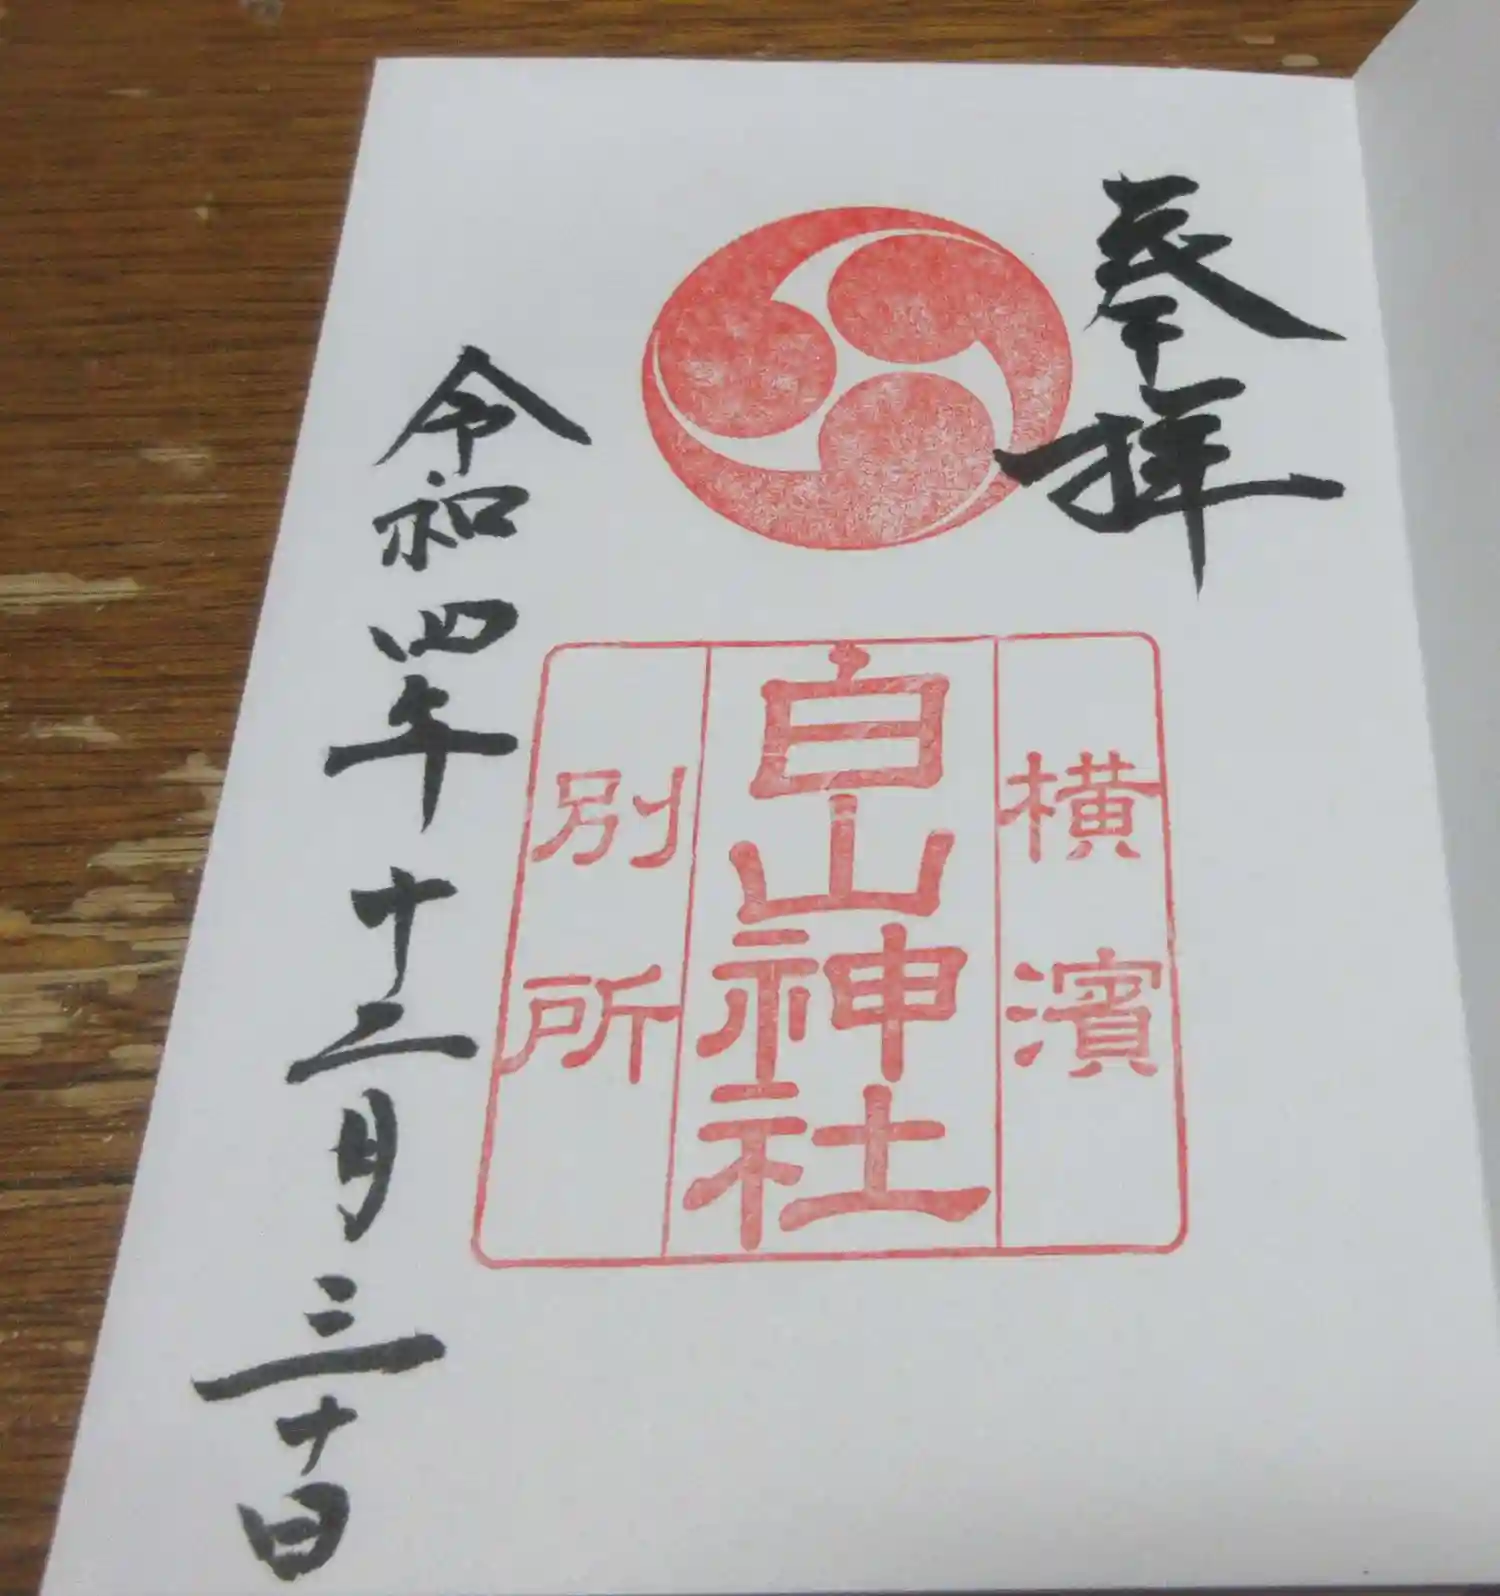 奉拝
横濱
白山神社
別所
令和四年十二月三十日